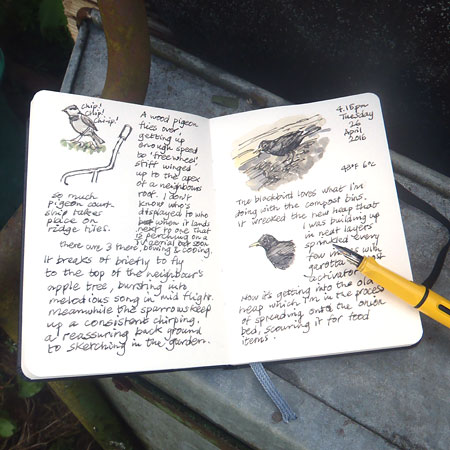 chip!
chip!
A wood pigeon
flies over
getting up
enough speed
to 'freewheel'
stiff winged
up to the apex
of a neighbours
roof. I don't
know who's
displayed to who
but when it lands
next to one that
is perching on a
tv aerial
so much
pigeon court
ship takes
place on
ridge tiles.
there were 3 there, bowing & cooing.
It breaks of briefly to fly
to the top of the neighbour's
apple tree, bursting into
melodious song in mid flight.
meanwhile the sparrows keep
up a consistent chirping.
a reassuring back ground
to sketching in the garden.
4.15pm
Tuesday
26
April
2016
43°F 6°C
The blackbird loves what I'm
doing with the compost bins.
it wrecked the new heap that
I was building up
in neat layers
sprinkled every
few with
garotta
activator
Now it's getting into the old
heap which I'm in the process
of spreading onto the
bed, scouring it for food
items.